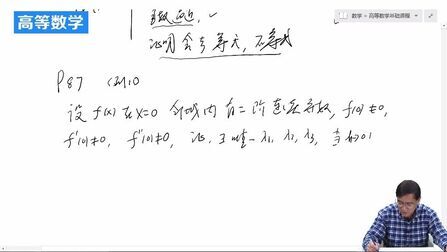 高等数学
数学 > 高等数学基础课程
证明会考等式,不等式
P87 例10
设 f(x) 在 x=0 邻域内有二阶连续导数, f(0)≠0,
f'(0)≠0, f''(0)≠0, 证: 存唯一 λ1, λ2, λ3, 当